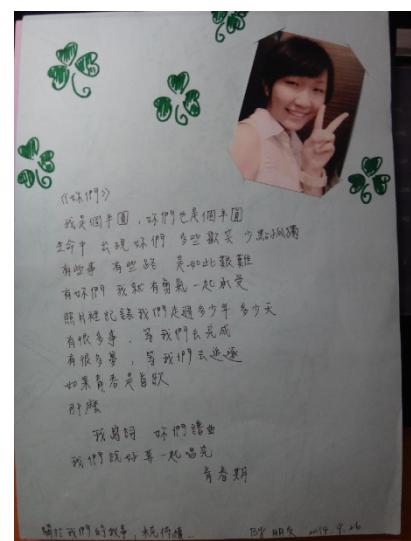 《妳們》
我是個半圓，妳們也是個半圓
生命中 出現妳們 多些歡笑 少點孤獨
有些事 有些路 是如此艱難
有妳們 我就有勇氣一起承受
照片裡記錄我們走過多少年 多少天
有很多事，等我們去完成
有很多夢，等我們去追逐
如果青春是首歌
那麼
我寫詞 妳們譜曲
我們說好要一起唱完
青春期
關於我們的故事，未完待續…
BY 2014.9.26